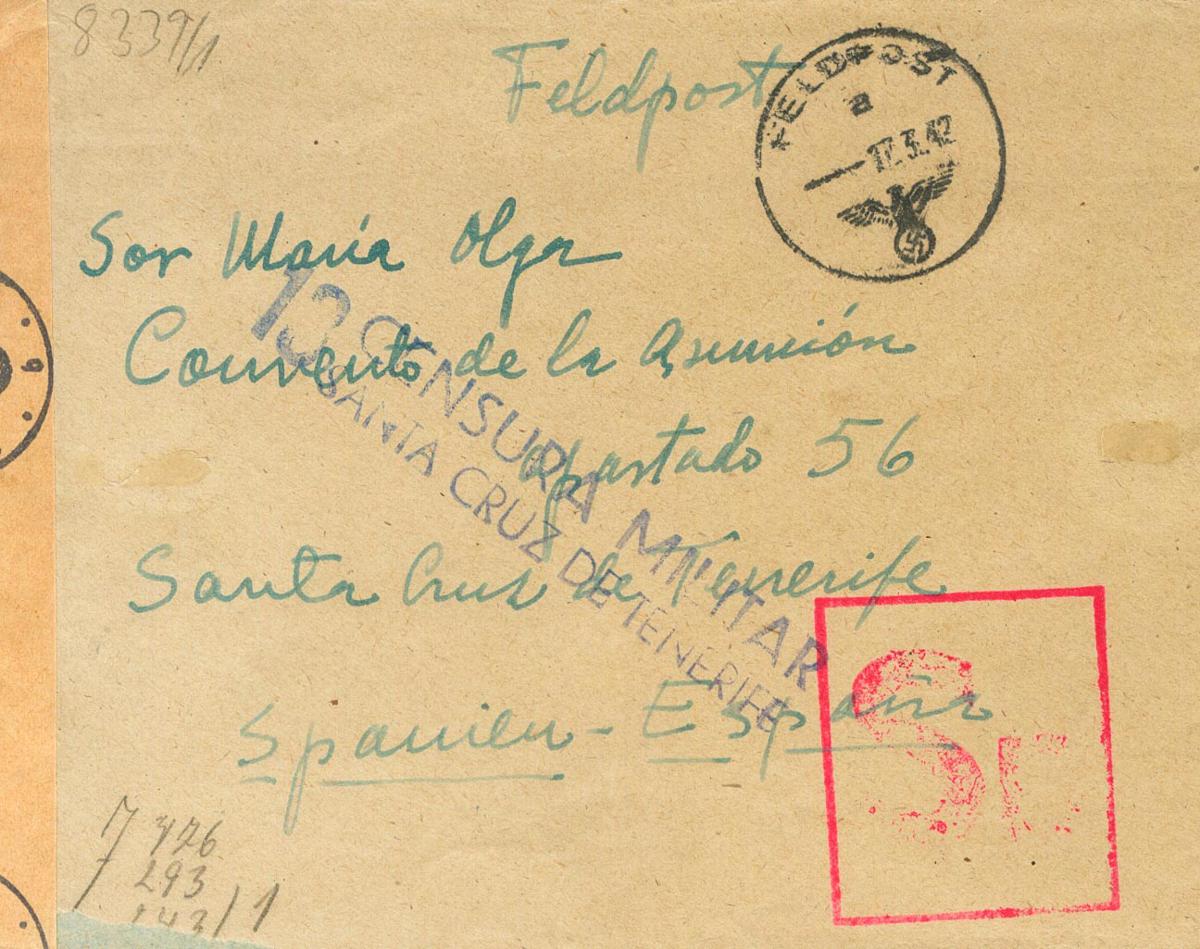 8339/1
Feldpost
FELDPOST
a
17.3.42
Sor María Olga
Convento de la Asunción
Apartado 56
Santa Cruz de Tenerife
Spanien - España
13 CENSURA MILITAR
SANTA CRUZ DE TENERIFE
6
293
143/1